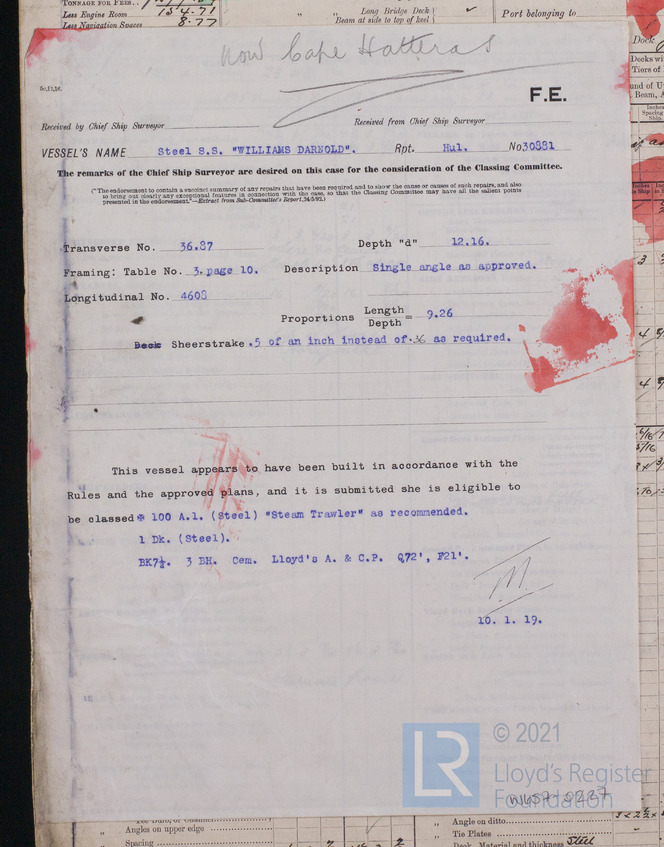 TONNAGE FOR FEES..
Less Engine Room 154.71
Less Navigation Spaces 8.77
Long Bridge Deck
Beam at side to top of keel
Port belonging to
Dock
now Cape Hatteras
F.E.
Received by Chief Ship Surveyor
Received from Chief Ship Surveyor
VESSEL'S NAME Steel S.S. "WILLIAMS DARNOLD". Rpt. Hul. No 30881
The remarks of the Chief Ship Surveyor are desired on this case for the consideration of the Classing Committee.
("The endorsement to contain a succinct summary of any repairs that have been required and to show the cause or causes of such repairs, and also
to bring out clearly any exceptional features in connection with the case, so that the Classing Committee may have all the salient points
presented in the endorsement."—Extract from Sub-Committee's Report,
Transverse No. 36.87 Depth "d" 12.16.
Framing: Table No. 3. page 10. Description Single angle as approved.
Longitudinal No. 4608
Proportions Length = 9.26
Depth
Deck Sheerstrake .5 of an inch instead of .36 as required.
This vessel appears to have been built in accordance with the
Rules and the approved plans, and it is submitted she is eligible to
be classed 100 A.1. (Steel) "Steam Trawler" as recommended.
1 Dk. (Steel).
BK7½. 3 BH. Cem. Lloyd's A. & C.P. Q72', F21'.
10. 1. 19.
LR
© 2021
Lloyd's Register
Foundation
W657-0227
Angles on upper edge
Spacing
Angle on ditto
Tie Plates
Deck, Material and thickness Steel